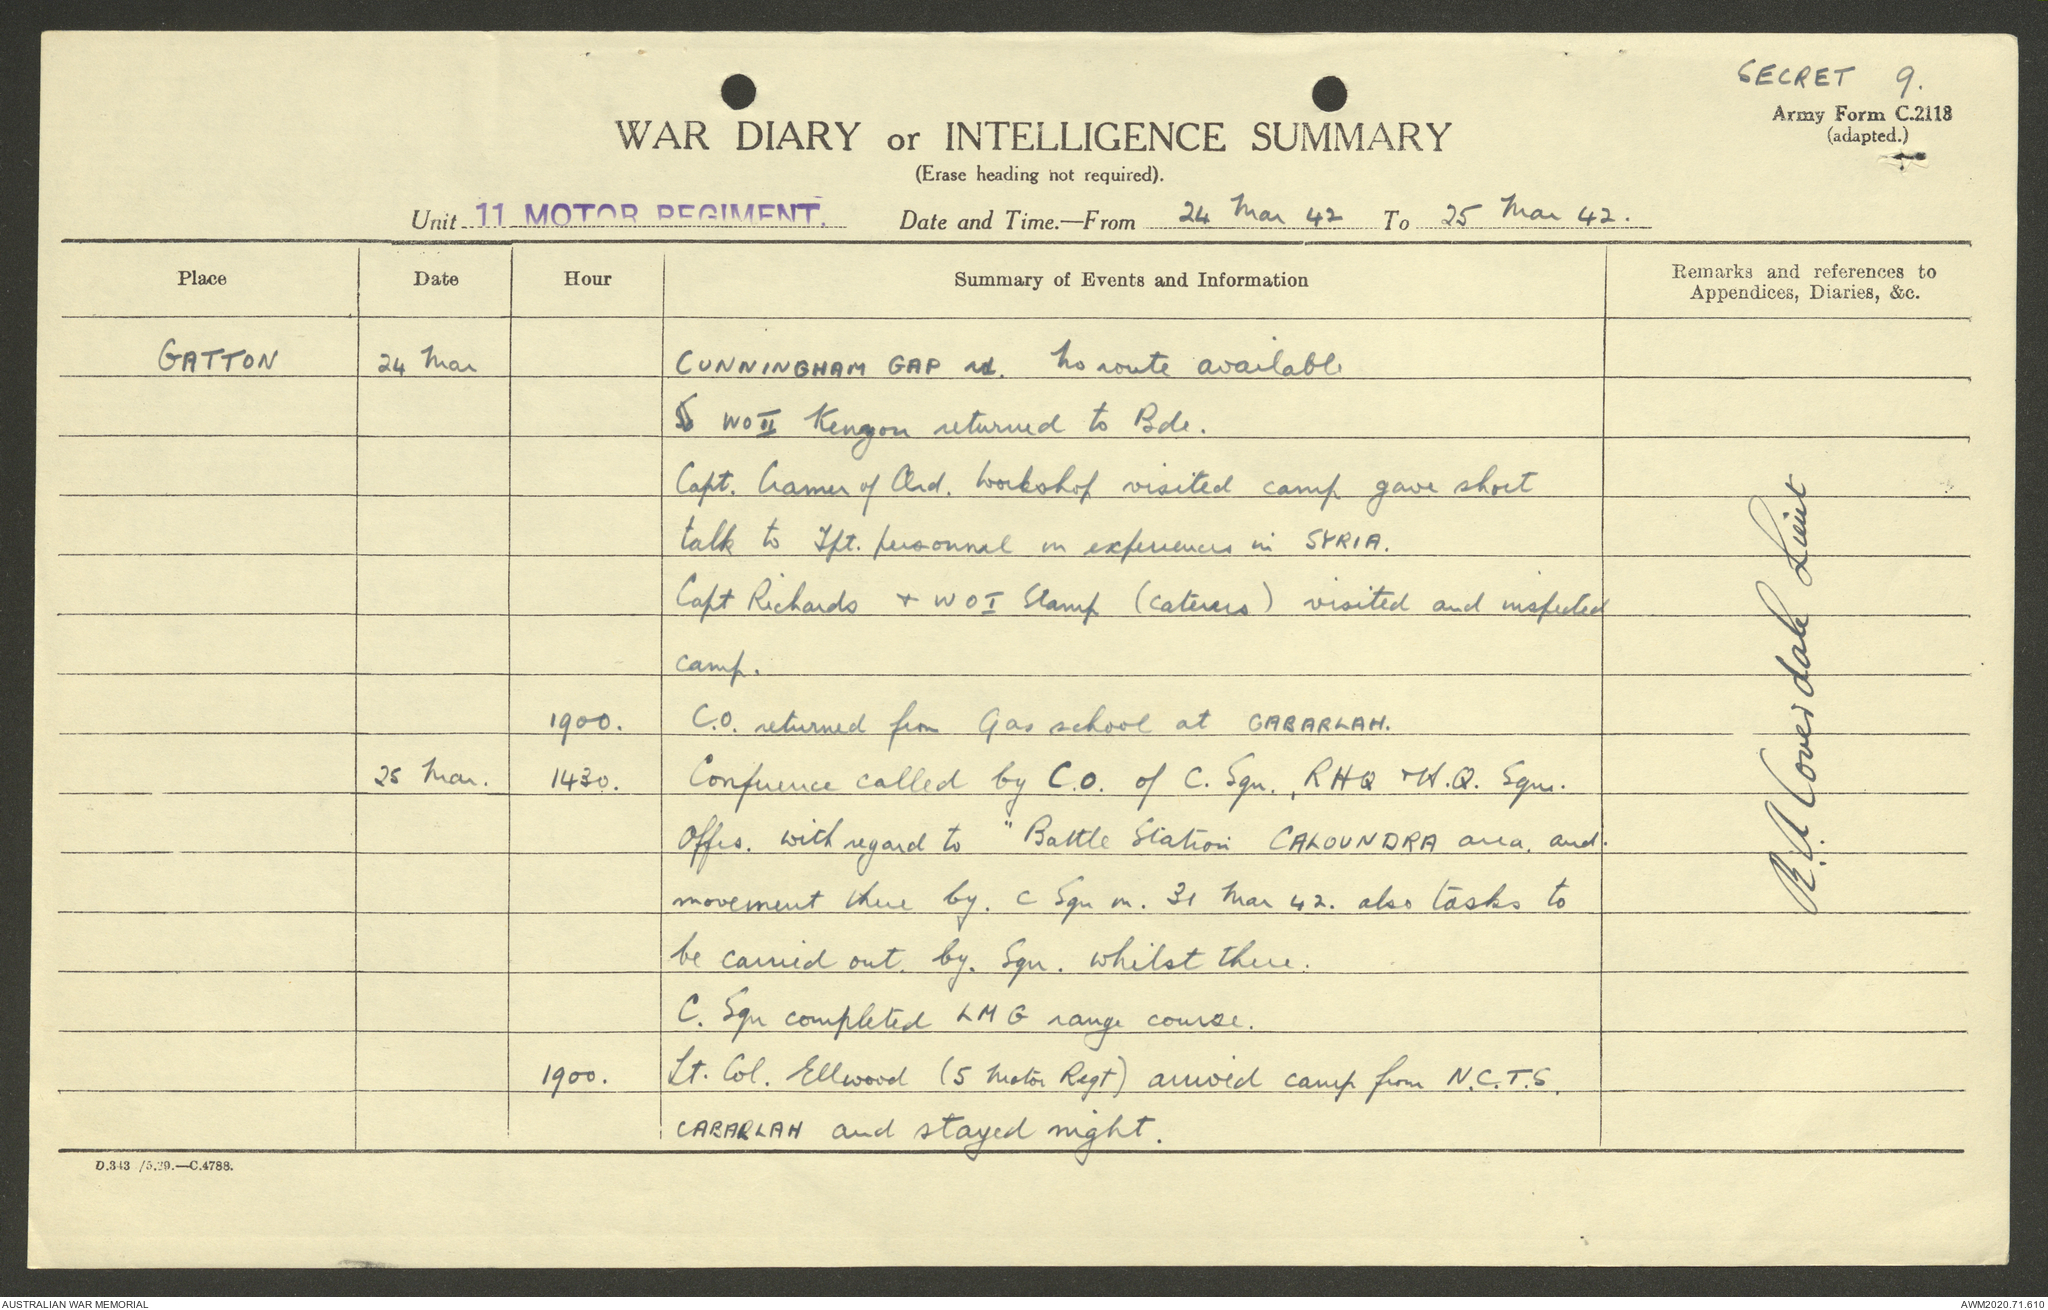 SECRET 9.
Army Form C.2118
(adapted.)
WAR DIARY or INTELLIGENCE SUMMARY
(Erase heading not required).
Unit 11 MOTOR REGIMENT. Date and Time.—From 24 Mar 42 To 25 Mar 42.
Place Date Hour Summary of Events and Information Remarks and references to Appendices, Diaries, &c.
GATTON 24 Mar CUNNINGHAM GAP rd. No route available
WO II Kenyon returned to Bde.
Capt. Cramer of Ord. Workshop visited camp gave short
talk to Tpt. personnel on experiences in SYRIA.
Capt Richards + WO I Stamp (caterers) visited and inspected
camp.
1900. C.O. returned from Gas school at CABARLAH.
25 Mar. 1430. Conference called by C.O. of C. Sqn., RHQ + H.Q. Sqn.
Offrs. with regard to "Battle Station CALOUNDRA area. and.
movement there by. C Sqn on. 31 Mar 42. also tasks to
be carried out. by. Sqn. whilst there.
C. Sqn completed LMG range course.
1900. Lt. Col. Ellwood (5 Motor Regt) arrived camp from N.C.T.S.
CABARLAH and stayed night.
Coverdale Lieut
D.343 /5.39.—C.4788.
AUSTRALIAN WAR MEMORIAL
AWM2020.71.610